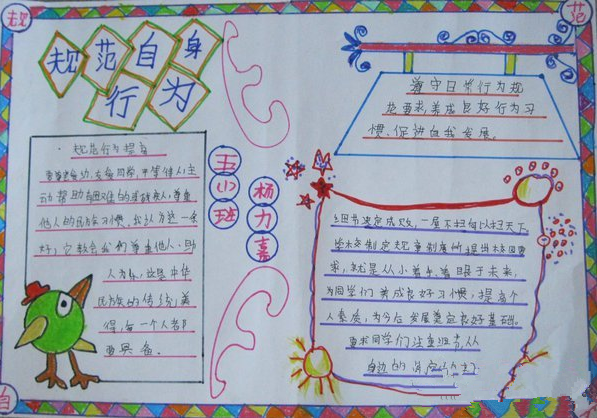 规
范
自
规范自身
行为
遵守日常行为规
范要求,养成良好行为习
惯、促进自我发展。
规范行为提高
动帮助
他人的民族习惯。我认为这一条
好,它教会我们尊重他人、助
人为乐,这是中华
民族的传统美
得,每一个人都
要具备。
五(1)班
杨力嘉
细节决定成败,一屋不扫何以扫天下。
学校制定规章制度所提出
求,就是从小着手,着眼于未来,
为同学们养成良好习惯,提高个
人素质,为今后发展奠定良好基础。
要求同学们注重细节,从
身边的